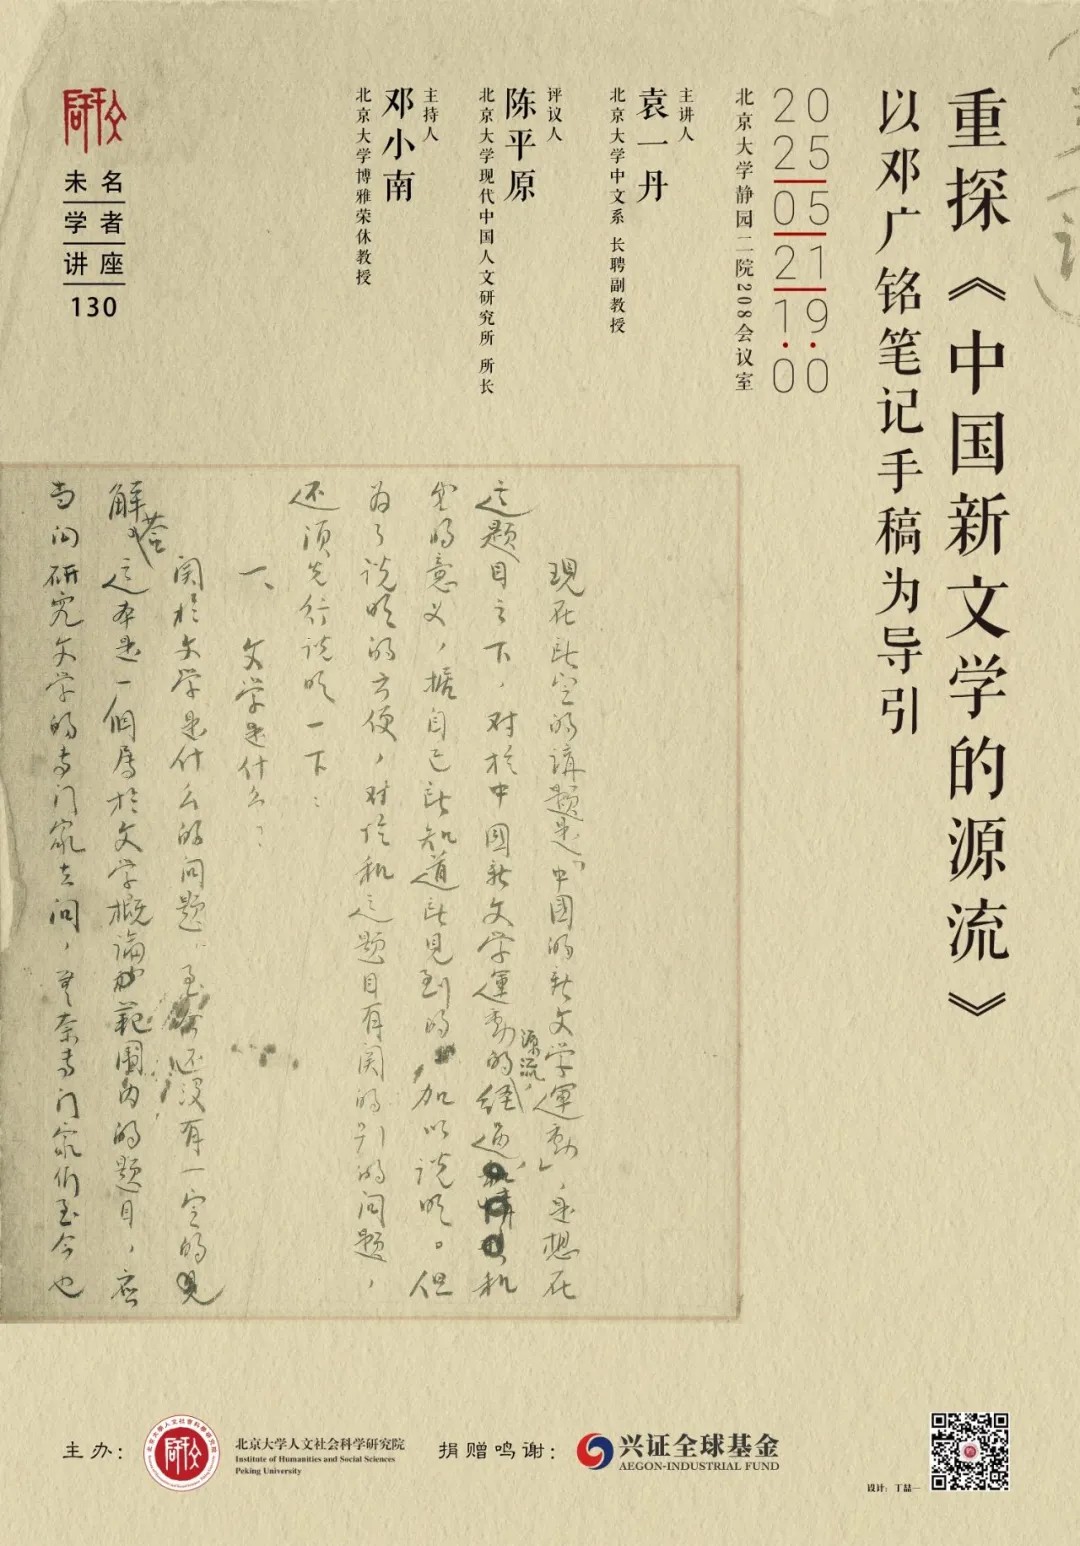 重探《中国新文学的源流》
以邓广铭笔记手稿为导引
20
25
05
21
19:
00
北京大学静园二院208会议室
主讲人
袁一丹
北京大学中文系 长聘副教授
评议人
陈平原
北京大学现代中国人文研究所 所长
主持人
邓小南
北京大学博雅荣休教授
未名
学者
讲座
130
現在所定的講題是「中國的新文学運動」,是想在
這题目之下,对於中國新文学運動的源流,經過和
它的意义,据自己所知道所見到的,加以说明。但
为了说明的方便,对於和这题目有関的别的问题,
还须先行说明一下:
一、文学是什么?
関於文学是什么的问题,至今还没有一定的見
解答,這本是一個属於文学概論的範圍内的题目,应
当向研究文学的专门家去问,无奈专门家们至今也
主办:
北京大学人文社会科学研究院
Institute of Humanities and Social Sciences
Peking University
捐赠鸣谢:
兴证全球基金
AEGON-INDUSTRIAL FUND
设计:丁喆一